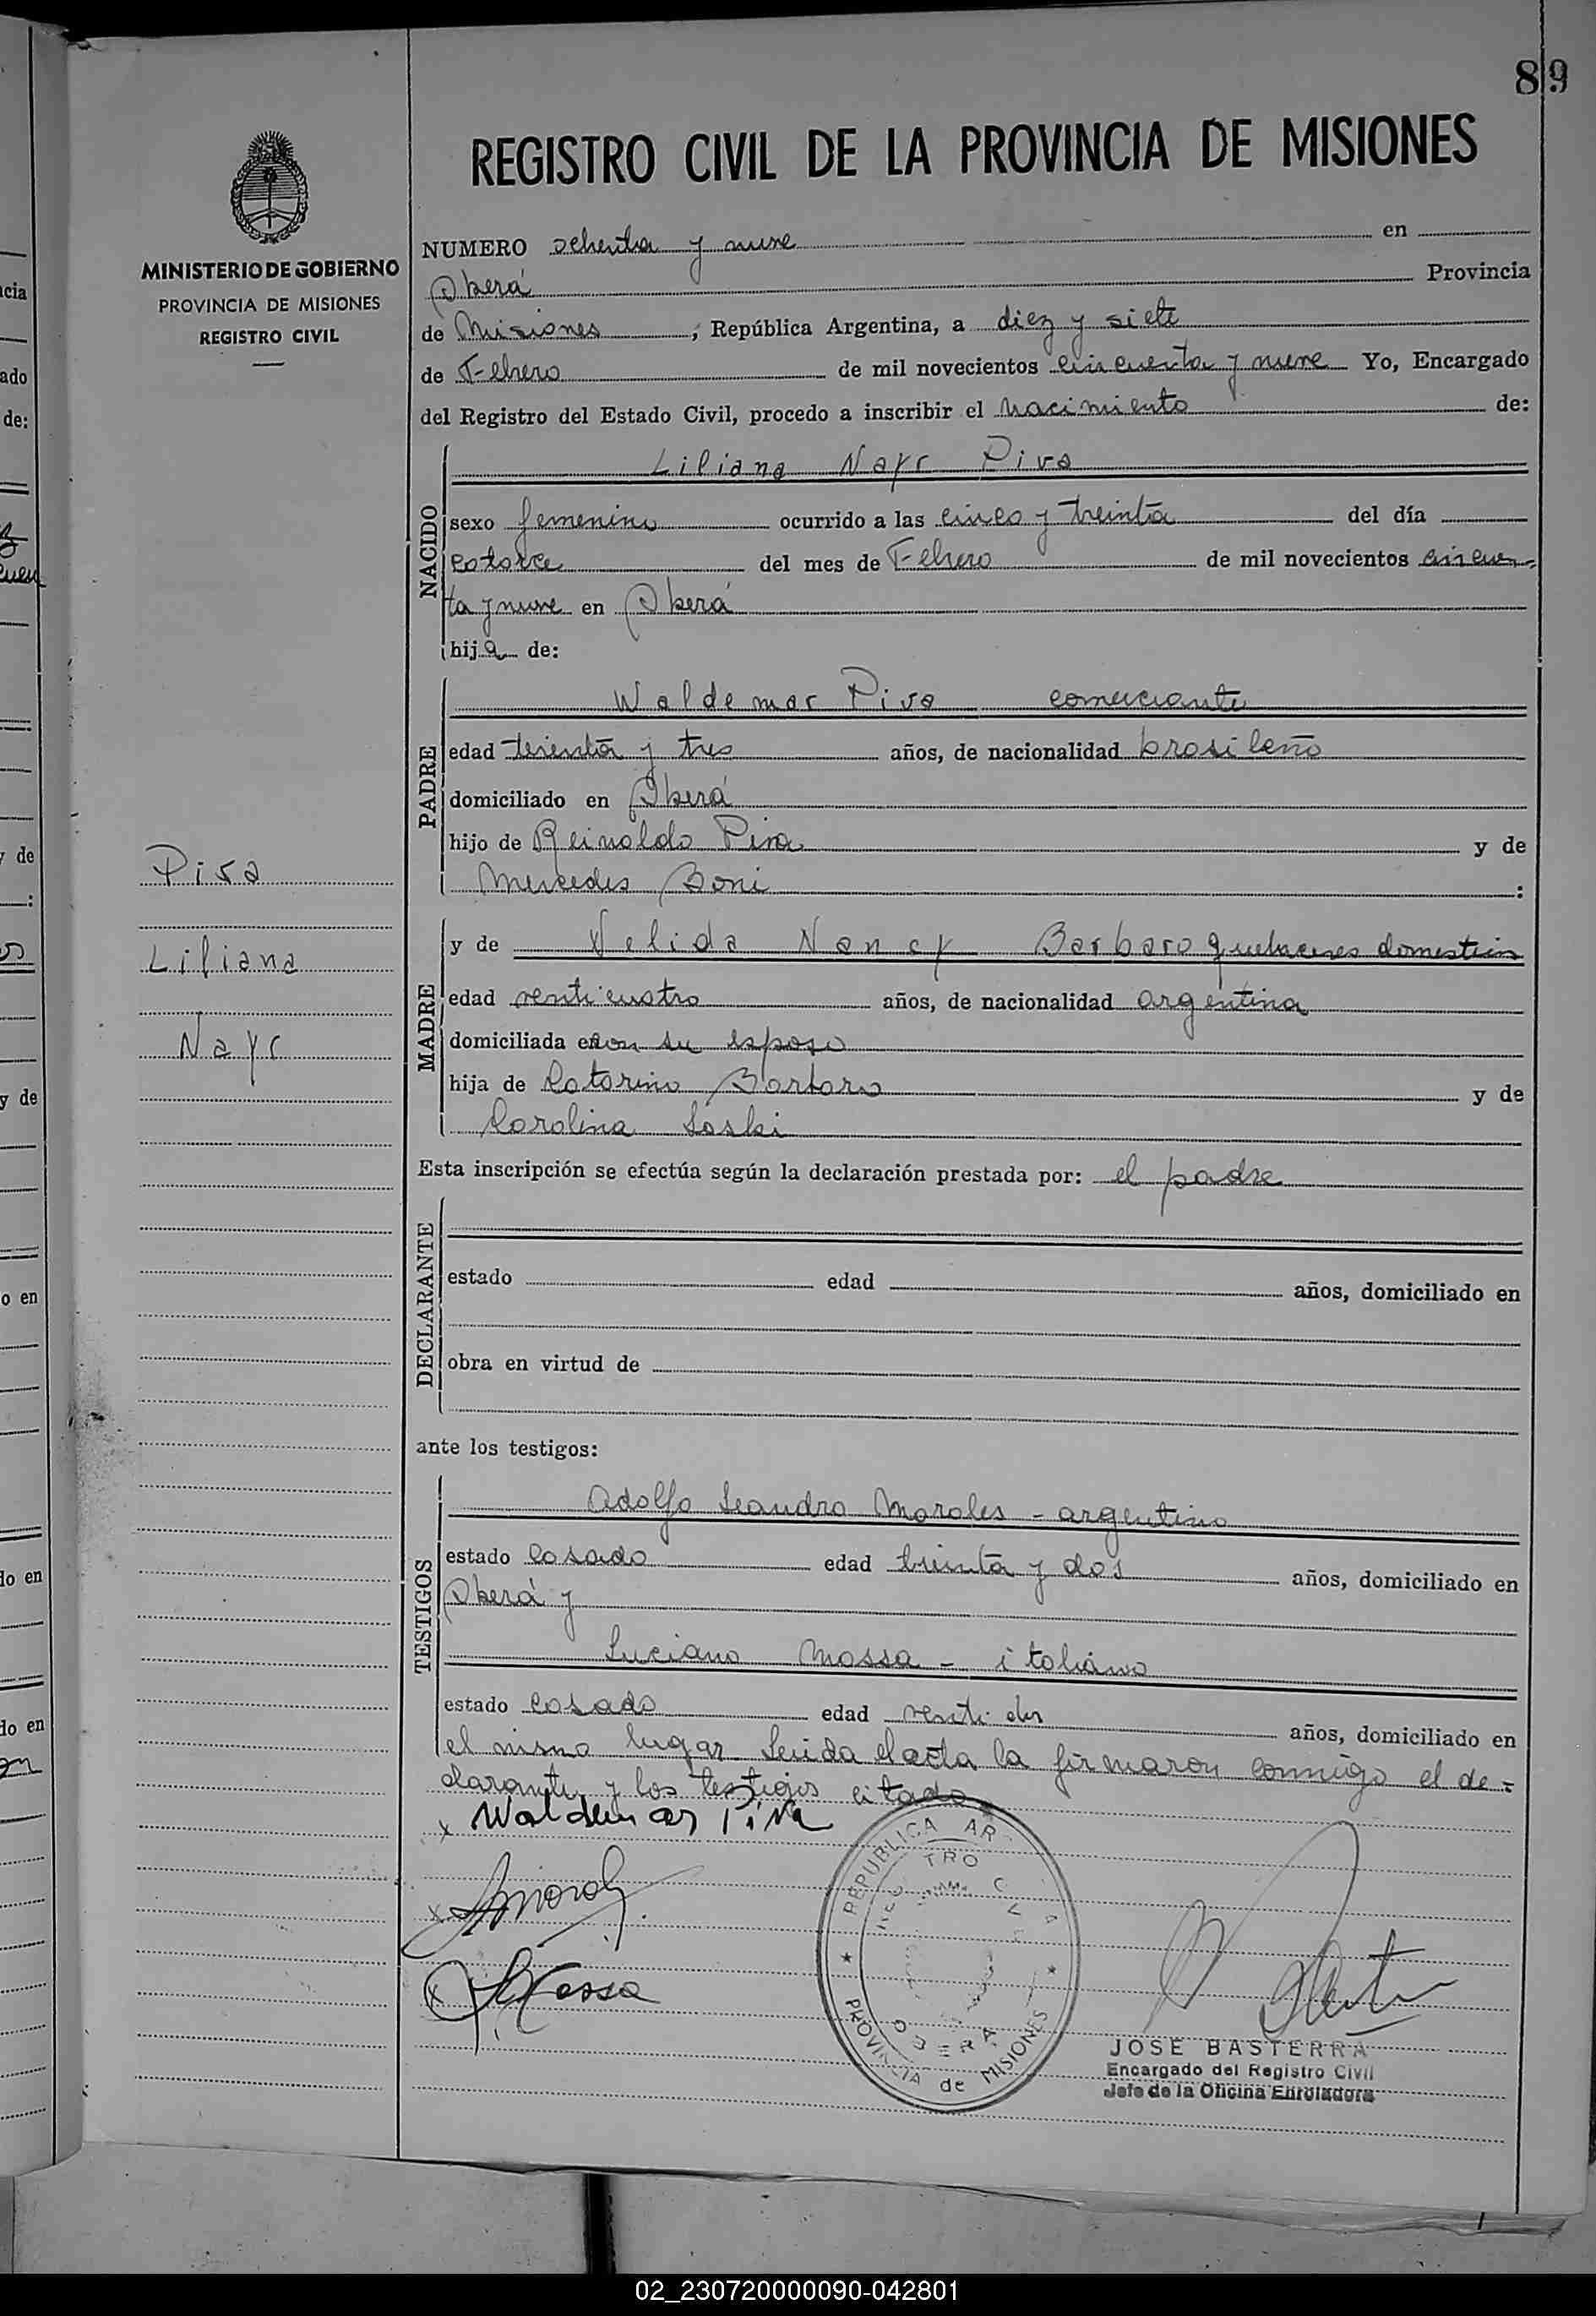 89
REGISTRO CIVIL DE LA PROVINCIA DE MISIONES
MINISTERIO DE GOBIERNO
PROVINCIA DE MISIONES
REGISTRO CIVIL
NUMERO ochenta y nueve en
Oberá Provincia
de Misiones, República Argentina, a diez y siete
de Febrero de mil novecientos cincuenta y nueve Yo, Encargado
del Registro del Estado Civil, procedo a inscribir el nacimiento de:
NACIDO
Liliana Nayr Piva
sexo femenino ocurrido a las cinco y treinta del día
catorce del mes de Febrero de mil novecientos cincuen-
ta y nueve en Oberá
hija de:
PADRE
Waldemar Piva comerciante
edad treinta y tres años, de nacionalidad brasileño
domiciliado en Oberá
hijo de Reinoldo Piva y de
Mercedes Boni :
Piva
Liliana
Nayr
MADRE
y de Nelida Nancy Barbaro quehaceres domestico
edad venti cuatro años, de nacionalidad argentina
domiciliada con su esposo
hija de Catarino Barbaro y de
Carolina Saski
Esta inscripción se efectúa según la declaración prestada por: el padre
DECLARANTE
estado edad años, domiciliado en
obra en virtud de
ante los testigos:
TESTIGOS
Adolfo Leandro Morales - argentino
estado casado edad treinta y dos años, domiciliado en
Oberá y
Luciano Mossa - italiano
estado casado edad venti dos años, domiciliado en
el mismo lugar. Leida el acta la firmaron conmigo el de-
clarante y los testigos citado
x Waldemar Piva
x AMorales
x LMossa
REPUBLICA AR A
PROVINCIA de MISIONES
OBERA
JOSE BASTERRA
Encargado del Registro Civil
Jefe de la Oficina Enroladora
02_230720000090-042801